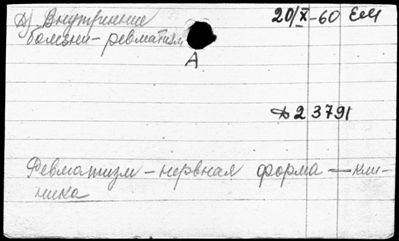 Д) Внутренние
болезни - ревматизм
20/X-60 ЕМ
А
Д23791
Ревматизм - нервная форма - кли-
ника